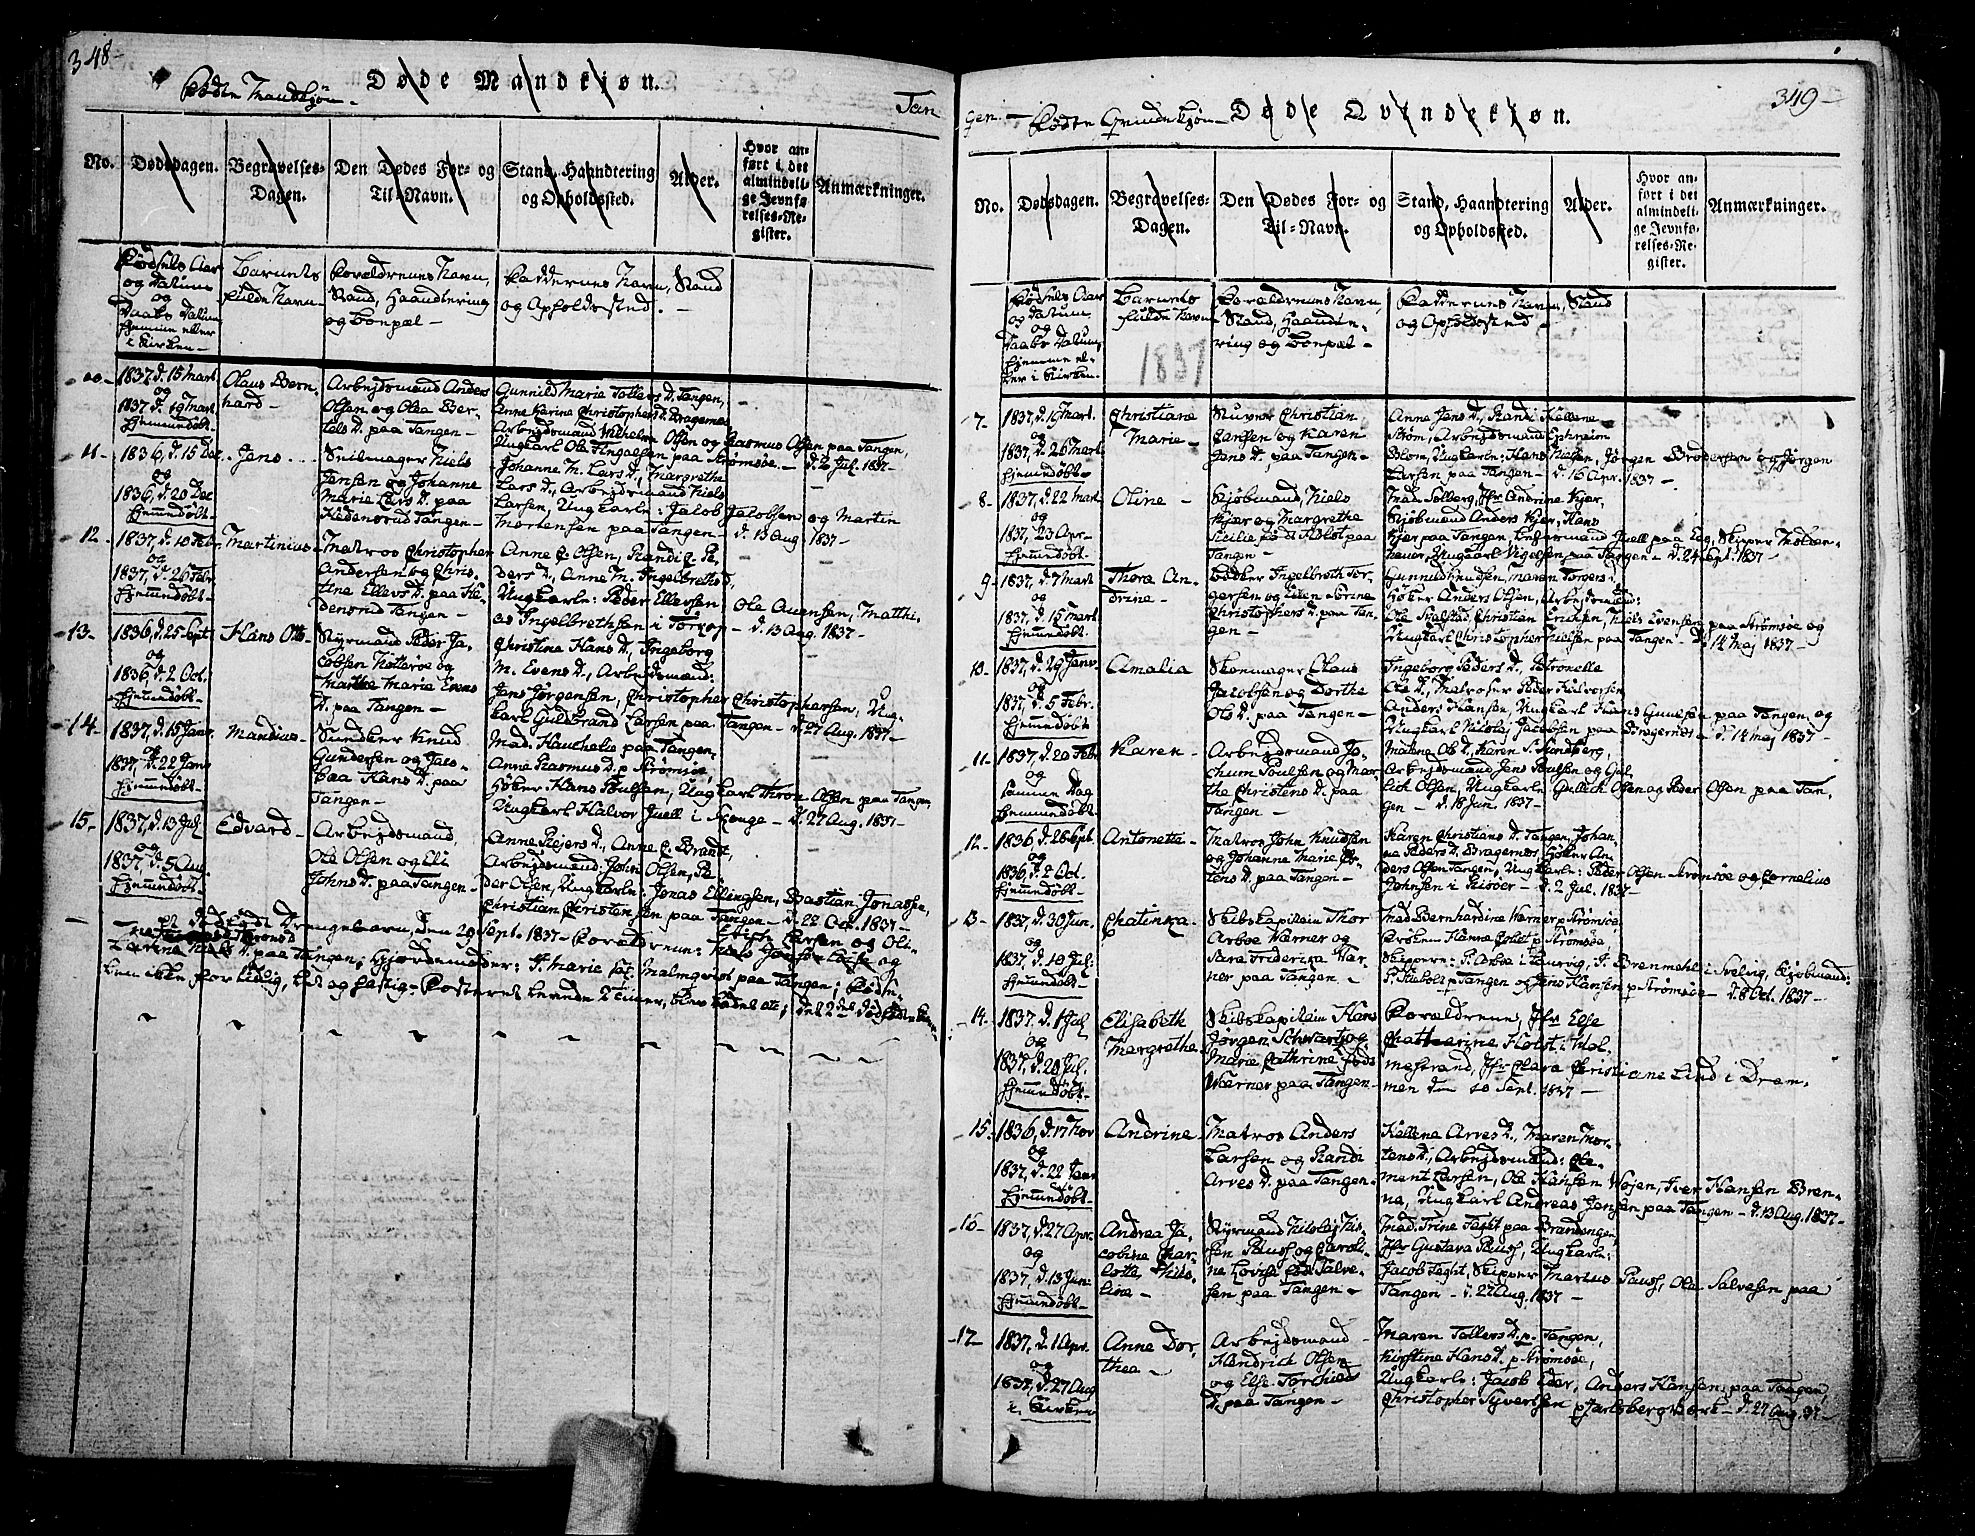 348-
Fødte Mandkjøn-
Døde Mandkjøn.
Tan
No.
Dødsdagen.
Begravelses-
Dagen.
Den Dødes For- og
Til-Navn.
Stand, Haandtering
og Opholdssted.
Alder.
Hvor an-
ført i det
almindeli-
ge Jevnfø-
relses-Re-
gister.
Anmærkninger.
Fødsels Aar
og Datum
og
Daabs Datum
hjemme eller
i Kirken-
Barnets
fulde Navn-
Forældrenes Navn,
Stand, Haandtering
og Bopæl-
Faddernes Navn, Stand
og Opholdssted. -
10-
1837, d. 15 Mart
og
1837 d. 19 Mart
Hjemmedøbt
Olaus Bern
hard-
Arbejdsmand Anders
Olsen og Olea Ber-
tels D. paa Tangen-
Gunnild Marie Tollefs D. Tangen,
Anne Karine Christophers D. Bragernes
Arbejdsmand Vilhelm Olsen og Rasmus Olsen paa Tangen,
Ungkarl Ole Fingalsen paa Strømsøe.- d. 2 Jul. 1837-
11-
1836, d. 15 Dec
og
1836, d. 20 Dec
Hjemmedøbt-
Jens
Seilmager Niels
Jensen og Johanne
Marie Lars D. paa
Tangen-
Johanne M. Lars D., Margrethe
Lars D., Arbejdsmand Niels
Larsen, Ungkarle: Jacob Jacobsen og Martin
Mortensen paa Tangen- d. 13 Aug 1837-
12-
1837, d. 10 Febr
og
1837, d. 26 Febr.
Hjemmedøbt-
Martinius-
Matros Christopher
Andersen og Chris-
tine Ellevs D. paa
Tangen-
Anne C. Olsen, Randi C. Pe-
ders D., Anne M. Ingelbreths D,
Ungkarle: Peder Ellefsen
Ole Auensen, Matthi-
as Ingelbrethsen i - d. 13 Aug. 1837-
13-
1836, d. 25 Sept
og
1836, d. 2 Oct.
Hjemmedøbt-
Hans Otto
Styrmand Peder Ja-
cobsen Kotteroe og
Marthe Marie Evens
D. paa Tangen-
Christina Hans D., Ingeborg
M. Evens D., Arbejdsmænd:
Jens Jørgensen, Christopher Christophersen, Ung-
karl Guldbrand Larsen paa Tangen- d. 27 Aug. 1837-
14-
1837, d. 15 Janr
og
1837, d. 22 Janr
Hjemmedøbt-
Mandius-
Knud
Gundersen og Jaco-
bea Hans D. paa
Tangen-
Mad. paa Tangen,
Anne Rasmus D. p. Strømsøe
Høker Hans Poulsen, Ungkarl Thron Olsen paa Tangen,
Ungkarl Halvor Juell i - d. 27 Aug. 1837-
15-
1837, d. 13 Jul
og
1837, d. 5 Aug.
Hjemmedøbt-
Edvard-
Arbejdsmand,
Ole Olsen og Eli
Johns D. paa Tangen-
Anne Reiers D., Anne C. Brandt,
Arbejdsmænd: John Olsen, Pe-
der Olsen, Ungkarle: Jonas Ellingsen, Bastian Jonassen,
Christian Christensen paa Tangen- d. 22 Oct. 1837-
Drengebarn, den 29 Sept. 1837- Forældrene: Larsen og Oli-
D. paa Tangen; Hjordemoder: J. Marie Malmqvist paa Tangen;
349-
gen-
Fødte Qvindekjøn-
Døde Qvindekjøn.
No.
Dødsdagen.
Begravelses-
Dagen.
Den Dødes For- og
Til-Navn.
Stand, Haandtering
og Opholdssted.
Alder.
Hvor an-
ført i det
almindeli-
ge Jevnfø-
relses-Re-
gister.
Anmærkninger.
Fødsels Aar
og Datum
og
Daabs Datum
hjemme el-
ler i Kirken.
Barnets
fulde Navn
1837
Forældrenes Navn,
Stand, Haandte-
ring og Bopæl-
Faddernes Navn, Stand
og Opholdssted-
7-
1837, d. 16 Mart.
og
1837, d. 26 Mart
Hjemmedøbt-
Christiane
Marie-
Stuver Christian
Jansen og Karen
Jens D. paa Tangen-
Anne Jens D., Randi Hellene
Strøm, Arbejdsmand Ephraim
Blom, Ungkarle: Hans Nielsen, Jørgen Brodersen og Jørgen
Larsen paa Tangen- d. 16 Apr. 1837-
8-
1837, d. 22 Mart
og
1837, d. 23 Apr-
Hjemmedøbt-
Oline-
Kjøbmand, Niels
Kjær og Margrethe
Sicilie fød Holst paa
Tangen-
Mad. Solberg, Jfr Andrine Kjær,
Kjøbmand Anders Kjær, Hans
Kjær paa Tangen, Juell paa Eeg, Skipper Molden-
hauer, Ungkarl Vigelsen paa Tangen- d. 24 Sept. 1837-
9-
1837, d. 7 Mart
og
1837, d. 15 Mart
Hjemmedøbt.
Thora An-
drine-
Bødker Ingelbreth Tor-
gersen og Elen Sirine
Christophers D. paa Tan-
gen-
Gunnild Knudsen, Maren Torgers:
Høker Anders Olsen, Arbejdsmænd:
Ole Svalstad, Christian Eriksen, Niels Evensen paa Strømsøe og
Ungkarl Christopher Nielsen paa Tangen- d. 14 Maj 1837-
10-
1837, d. 29 Janr.
og
1837, d. 5 Febr.
Hjemmedøbt
Amalia
Skomager Claus
Jacobsen og Dorthe
Ols D. paa Tangen-
Ingeborg Peders D., Petronelle
Ole D., Matroser Peder Halvorsen
Anders Hansen, Ungkarl Frans Gunelsen paa Tangen, og
Ungkarl Nicolaj Jacobsen paa Bragernæs- d. 14 Maj 1837-
11-
1837, d. 20 Febr
og
samme Dag
Hjemmedøbt
Karen-
Arbejdsmand Jo-
chum Poulsen og Mar-
the Christens D. paa
Tangen-
Malene Ols D., Karen S. Sundberg,
Arbejdsmand Jens Poulsen og Gul-
lich Olsen, Ungkarle: Gullich Olsen og Peder Olsen paa Tan-
gen- d. 18 Jun. 1837-
12-
1836, d. 26 Sept.
og
1836, d. 2 Oct.
Hjemmedøbt-
Antonette-
Matros John Knudsen
og Johanne Marie Pe-
ters D. paa Tangen-
Karen Christians D. Tangen, Johan-
ne Peders D. Bragernæs, Høker An-
ders Olsen Tangen, Ungkarle: Peder Olsen Strømsøe og Cornelius
Johnsen i Riisøer- d. 2 Jul. 1837-
13-
1837, d. 30 Jun.
og
1837, d. 10 Jul:
Hjemmedøbt-
Chatinka-
Skibskapitain Thor
Arboe Værner og
Sara Friderica Vær-
ner paa Tangen-
Mad Bernhardine Værner p. Strømsøe,
Frøken Hanne Holst p. Strømsøe,
Skippere: P. Arboe i Laurvig, J. Brenmehl i Svelvig, Kjøbmænd:
P. Kiøbolt p. Tangen og Jens Hansen p. Strømsøe- d. 8 Oct. 1837-
14-
1837, d. 1 Jul
og
1837, d. 20 Jul.
Hjemmedøbt-
Elisabeth
Margrethe
Skibskapitain Hans
Jørgen Schwartz og
Marie Cathrine fød
Værner paa Tangen-
Forældrene, Jfr Else
Chatharine Holst i Hol-
mestrand, Jfr Clara Christiane Lind i Dram-
men den 10 Sept. 1837-
15-
1836, d. 17 Nov
og
1837, d. 22 Janr
Hjemmedøbt-
Andrine-
Matros Anders
Larsen og Randi
Arves D. paa Tangen-
Hellena Arves D., Maren Mor-
tens D., Arbejdsmænd: Cle-
ment Larsen, Ole Hansen Wøjen, Iver Hansen Bren-
na, Ungkarl Andreas Jensen paa Tangen- d. 13 Aug. 1837-
16-
1837, d. 27 Apr.
og
1837, d. 13 Jun:
Hjemmedøbt-
Andrea Ja-
cobine Char-
lotte Nico-
line-
Styrmand Nicolaj Nis-
sen Pauss og Caroli-
ne Lovise fød Salve-
sen paa Tangen-
Mad. Trine Teght paa Brandengen,
Jfr Gustava Pauss, Ungkarle:
Jacob Teght, Skipper Marius Pauss, Ole Salvesen paa
Tangen- d. 27 Aug. 1837-
17
1837, d. 1 Apr.
og
1837, d. 27 Aug
i Kirken
Anne Dor-
thea-
Arbejdsmand
Hendrich Olsen
og Else Torchild
D. paa Tangen-
Maren Tollefs D. p. Tangen,
Kirstine Hans D. p. Strømsøe,
Ungkarle: Jacob Eder, Anders Hansen, paa Tangen,
Christopher Syvertsen p. Jarlsberg Værk- d. 27 Aug. 37-